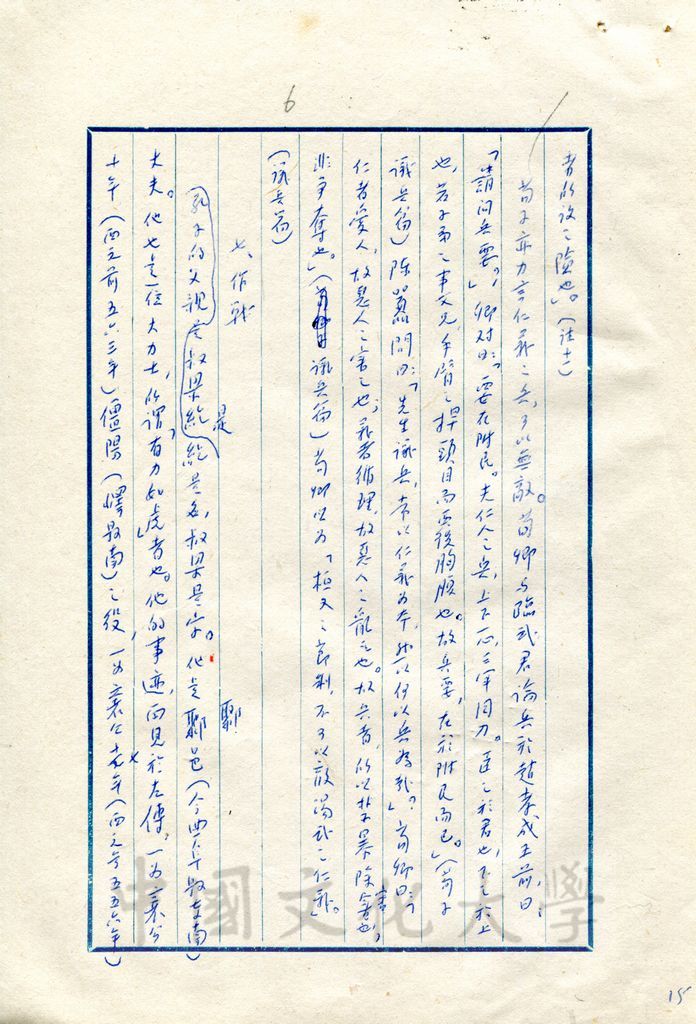 6
者所設之險也。」(註十一)
荀子亦力言仁義之兵,可以無敵。荀卿与臨武君論兵於趙孝成王前,曰:
「請問兵要?」卿对曰:「要在附民。夫仁人之兵,上下一心,三軍同力。臣之於君也,下之於上
也,若子弟之事父兄,手臂之捍頭目而覆胸腹也。故兵要,在於附民而已。」(荀子
議兵篇)陳嚣問曰:「先生議兵,常以仁義为本,以何以兵為哉?」荀卿曰:「
仁者愛人,故惡人之害之也;義者循理,故惡人之亂之也。故兵者,所以禁暴除害也,
非爭奪也。」(議兵篇)荀卿以为「桓文之節制,不可以敵湯武之仁義。」
(議兵篇)
七、作戰
孔子的父親是叔梁紇,紇是名,叔梁是字。他是鄹邑(今曲阜縣東南)
大夫。他也是一位大力士,所謂「有力如虎者也」。他的事迹,两見於左傳,一为襄公
十年(西元前五六三年)偪陽(嶧縣南)之役,一为襄公十七年(西元前五五六年)
是
鄹
中國文化大學
15